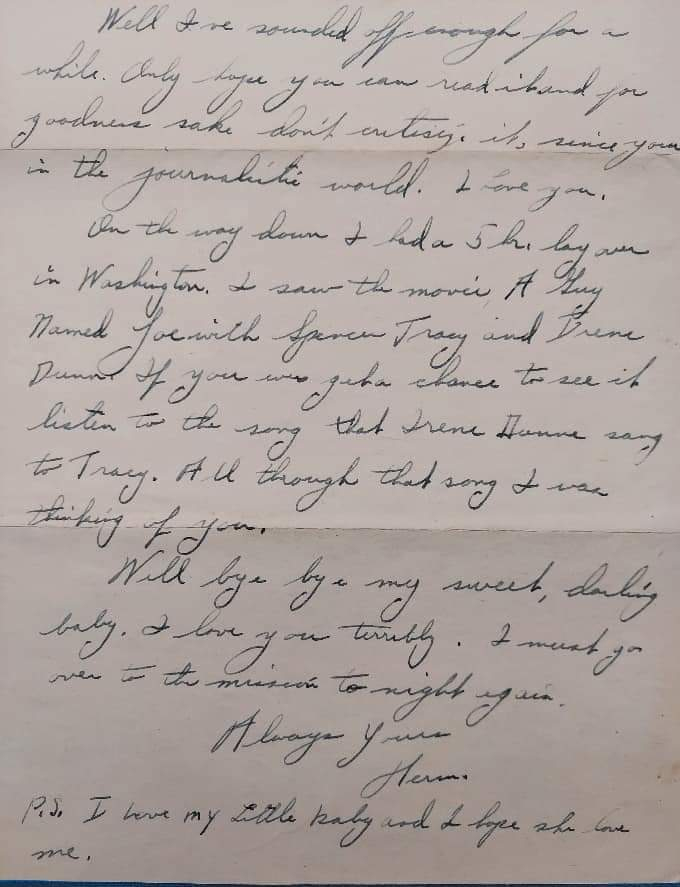 Well I've sounded off enough for a
while. Only hope you can read it and for
goodness sake don't critisize it, since your
in the journalistic world. I love you.
On the way down I had a 5 hr. lay over
in Washington. I saw the movie, A Guy
Named Joe with Spencer Tracy and Irene
Dunne If you ever get a chance to see it
listen to the song that Irene Dunne sang
to Tracy. All through that song I was
thinking of you.
Well bye bye my sweet, darling
baby. I love you terribly. I must go
over to the mission to night again.
Always Yours
Herm.
P.S. I love my Little baby and I hope she love
me.